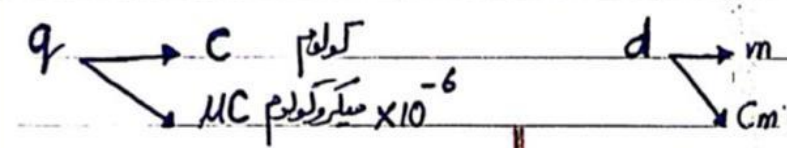 q → C كولوم d → m
μC ميكروكولوم ×10⁻⁶ Cm